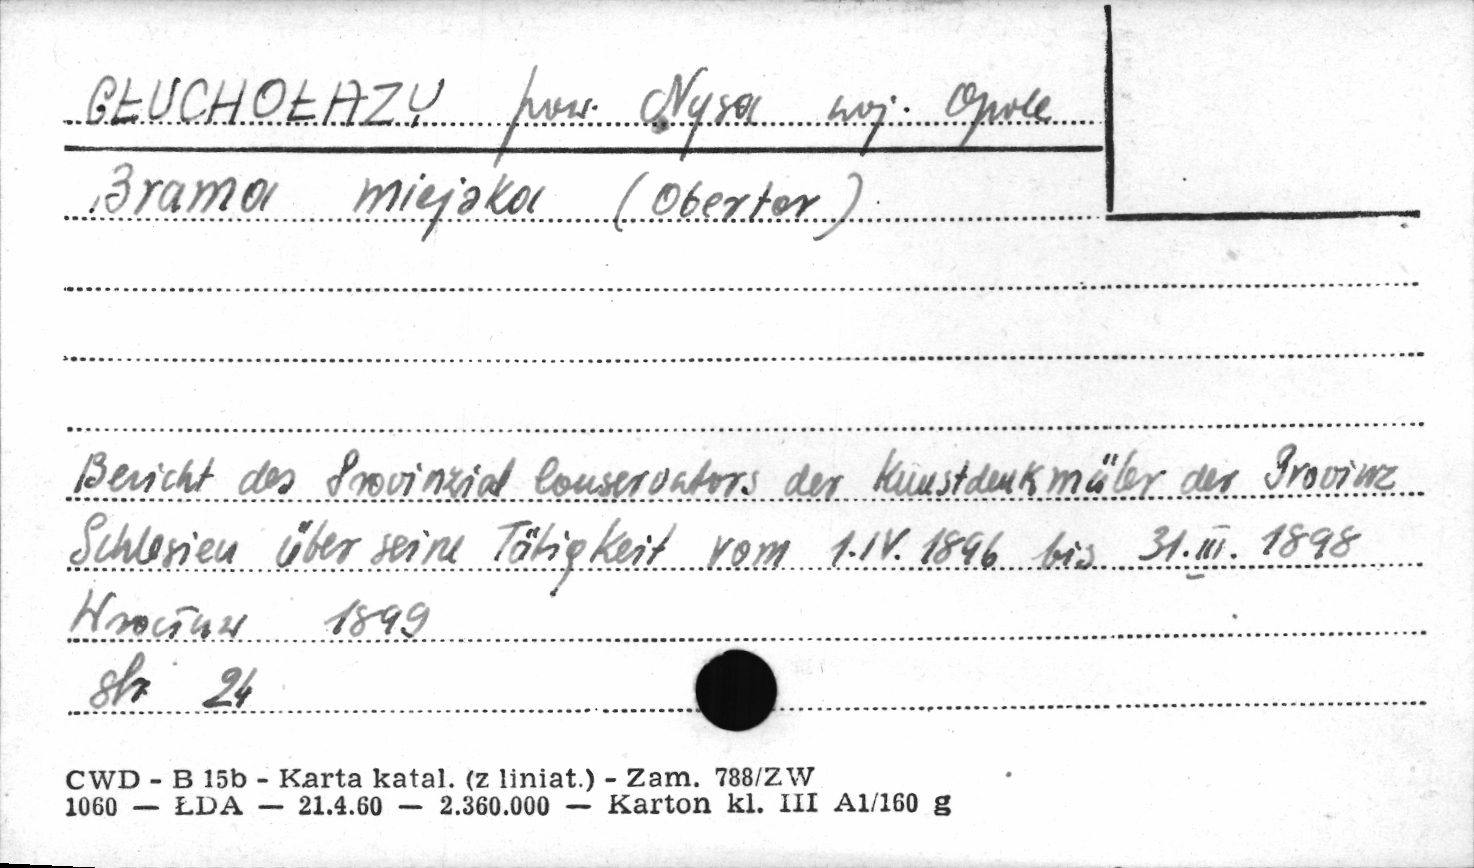 GŁUCHOŁAZY pow. Nysa woj. Opole
Brama miejska (Obertor)
Bericht des Provinzial Conservators der Kunstdenkmäler der Provinz
Schlesien über seine Tätigkeit vom 1.IV. 1896 bis 31.III. 1898
Wrocław 1899
str 24
CWD - B 15b - Karta katal. (z liniat.) - Zam. 788/ZW
1060 — ŁDA — 21.4.60 — 2.360.000 — Karton kl. III A1/160 g